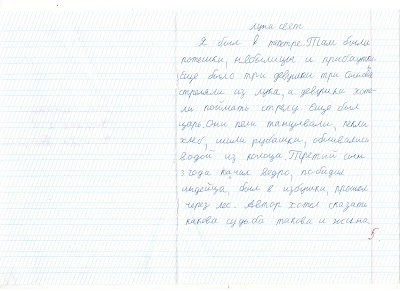 пути свет
Я был в театре. Там были
потешки, небылицы и прибаутки.
Еще было три девушки три сынове
стреляли из лука, а девушки хоте
ли поймать стрелу. Еще был
царь. Они пели танцывали, пекли
хлеб, шили рубашка, обливались
водой из колоца. Третий сын
3 года качил ведро, победил
индейца, был в избушки, прошел
через лес. Автор хотел сказать
какова судьба такова и жизна
5